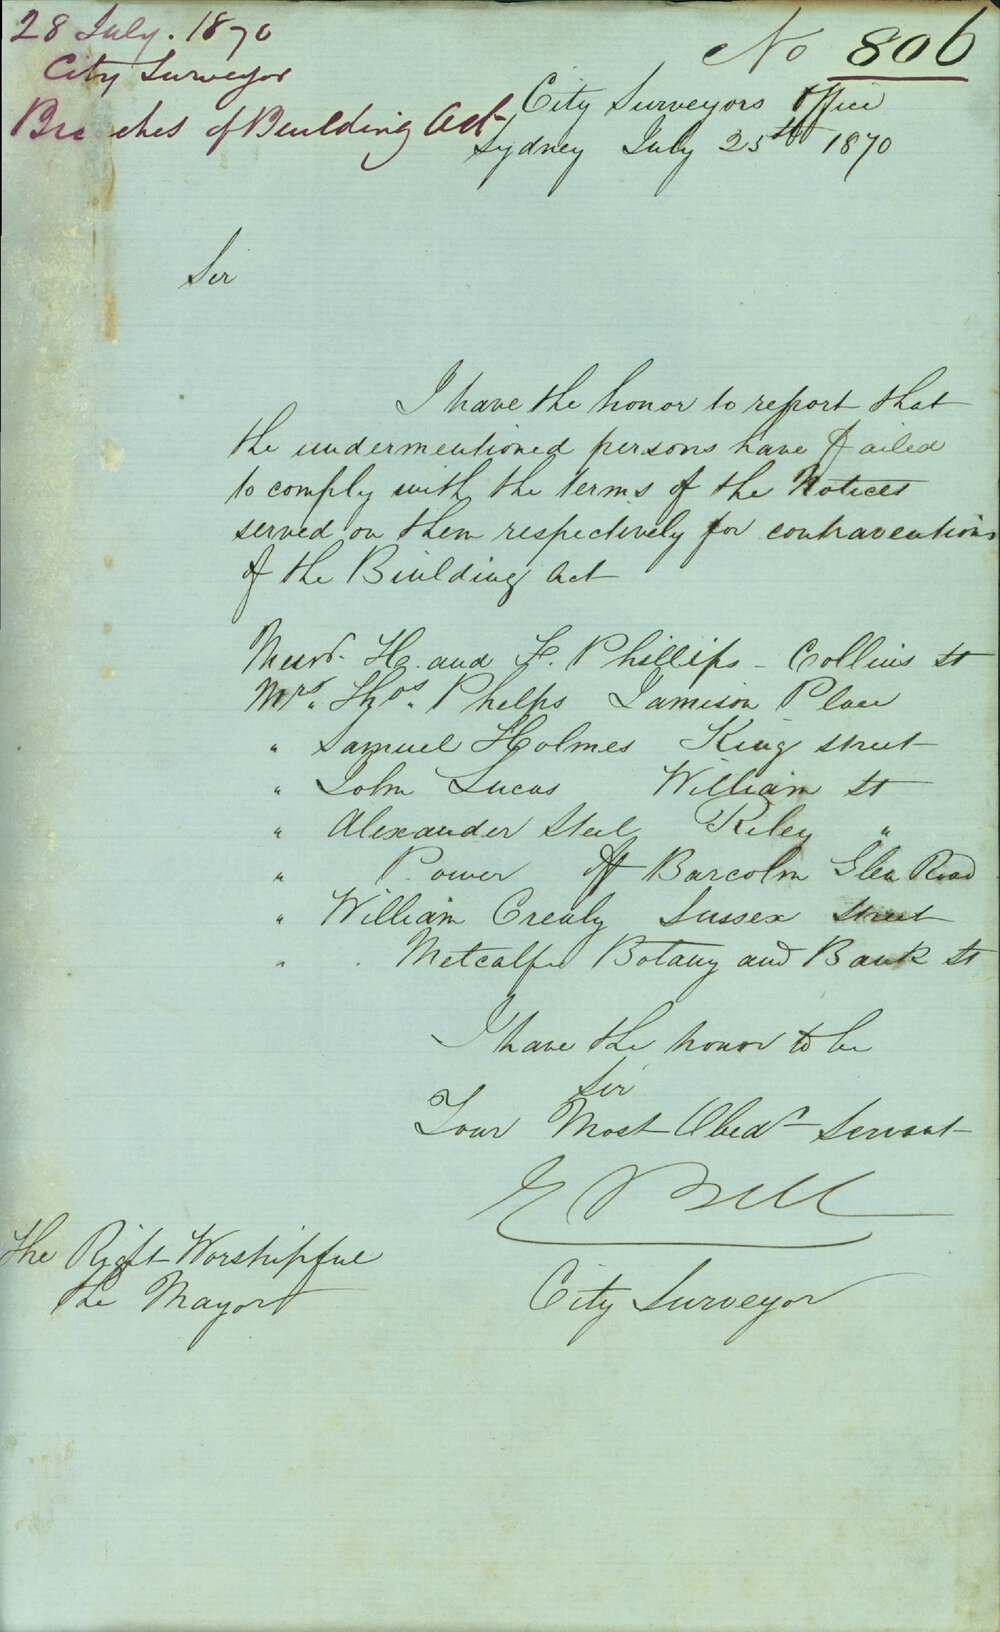 28 July. 1870
City Surveyor
Breaches of Building Act
No 806
City Surveyors Office
Sydney July 25th 1870
Sir
I have the honor to report that
the undermentioned persons have failed
to comply with the terms of the Notices
served on them respectively for contraventions
of the Building Act
Messrs. H. and F. Phillips - Collins St
Mrs. Thos. Phelps Jamison Place
" Samuel Holmes King Street
" John Lucas William St
" Alexander Steel Riley "
" Power Off Barcolm Glen Road
" William Crealy Sussex Street
" Metcalfe Botany and Bank St
I have the honor to be
Sir
Your Most Obedt Servant
E Bell
City Surveyor
The Right Worshipful
the Mayor